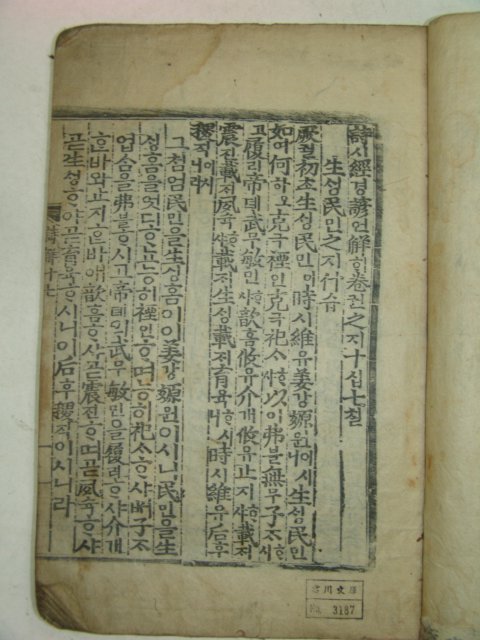 詩시經경諺언解ᄒᆡ卷권之지十십七칠
生ᄉᆡᆼ民민之지什습
厥궐初초生ᄉᆡᆼ民민이時시維유姜강嫄원이시니生ᄉᆡᆼ民민
如여何하오克극禋인克극祀ᄉᆞᄒᆞ샤以이弗불無무子ᄌᆞᄒᆞ시
고履리帝뎨武무敏민ᄒᆞ샤歆흠攸유介개攸유止지ᄒᆞ샤載ᄌᆡ
震진載ᄌᆡ夙슉ᄒᆞ샤載ᄌᆡ生ᄉᆡᆼ載ᄌᆡ育육ᄒᆞ시니時시維유后후
稷직이시니라
그처엄民민을生ᄉᆡᆼᄒᆞᆷ이이姜강嫄원이시니民민을生
ᄉᆡᆼᄒᆞᆷ을엇디ᄒᆞ뇨능히禋인ᄒᆞ며능히祀ᄉᆞᄒᆞ샤써子ᄌᆞ
업ᄉᆞᆷ을弗불ᄒᆞ시고帝뎨의武무敏민을履리ᄒᆞ샤介개
ᄒᆞᆫ바와止지ᄒᆞᆫ바애歆흠ᄒᆞ샤곧震진ᄒᆞ며곧夙슉ᄒᆞ샤
곧生ᄉᆡᆼᄒᆞ야곧育육ᄒᆞ시니이后후稷직이시니라
十七
No. 3187